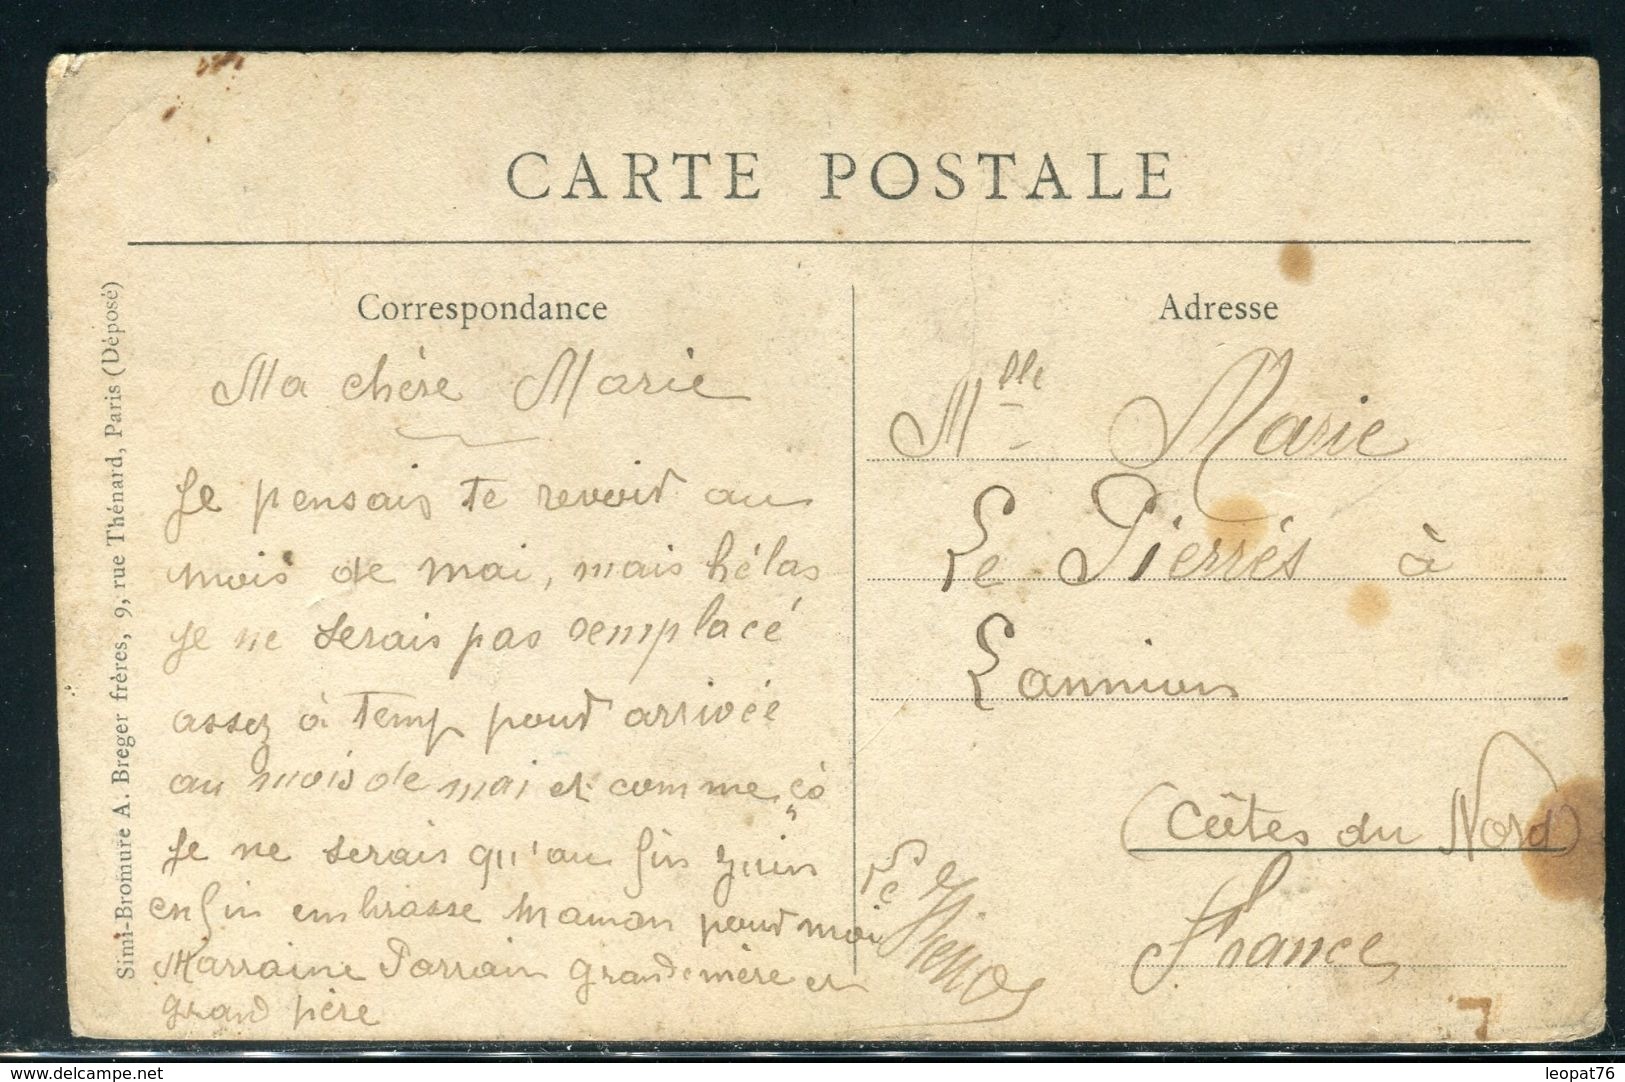 CARTE POSTALE
Correspondance
Ma chère Marie
Je pensais te revoir au
mois de mai, mais hélas
je ne serais pas remplacé
assez à temp pour arrivée
au mois de mai et comme ça
Je ne serais qu'au fin juin
enfin embrasse maman pour moi
Marraine Parrain grandemère et
grand père
Le Pierrès
Adresse
Mlle Marie
Le Pierrès à
Lannion
(Côtes du Nord)
France
7
Simi-Bromure A. Breger frères, 9, rue Thénard, Paris (Déposé)
delcampe.net
leopat76